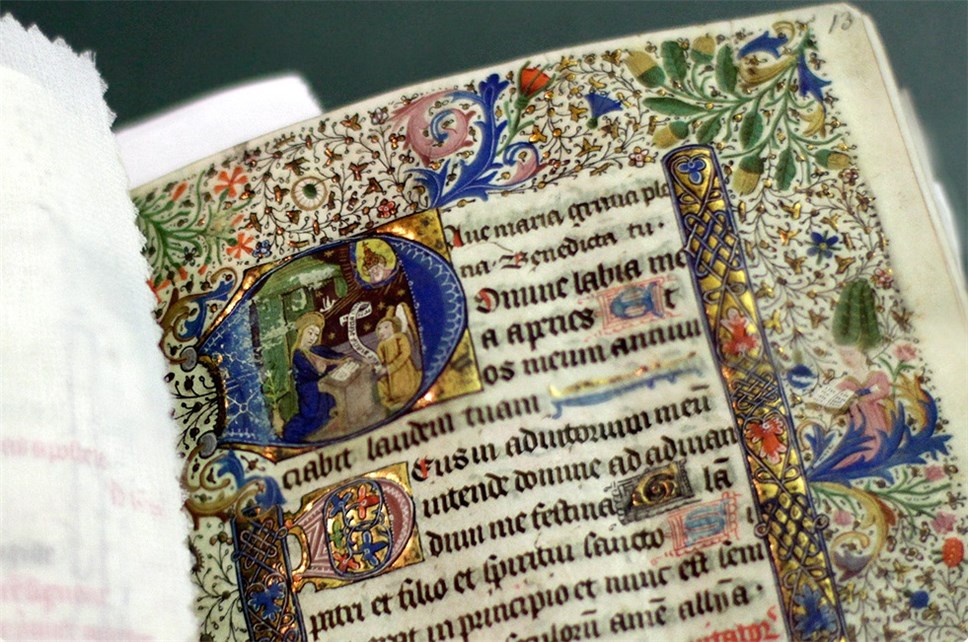 13
Aue maria gracia ple
na · Benedicta tu ·
DOmine labia me
a apties Et
os meum annun
ciabit laudem tuam
DEus in adiutorium meū
intende domine ad adiuuan
dum me festina G lā
ptri et filio et spiritui sancto S i
erat in principio et nunc et sem
seculorū amē allīa ·